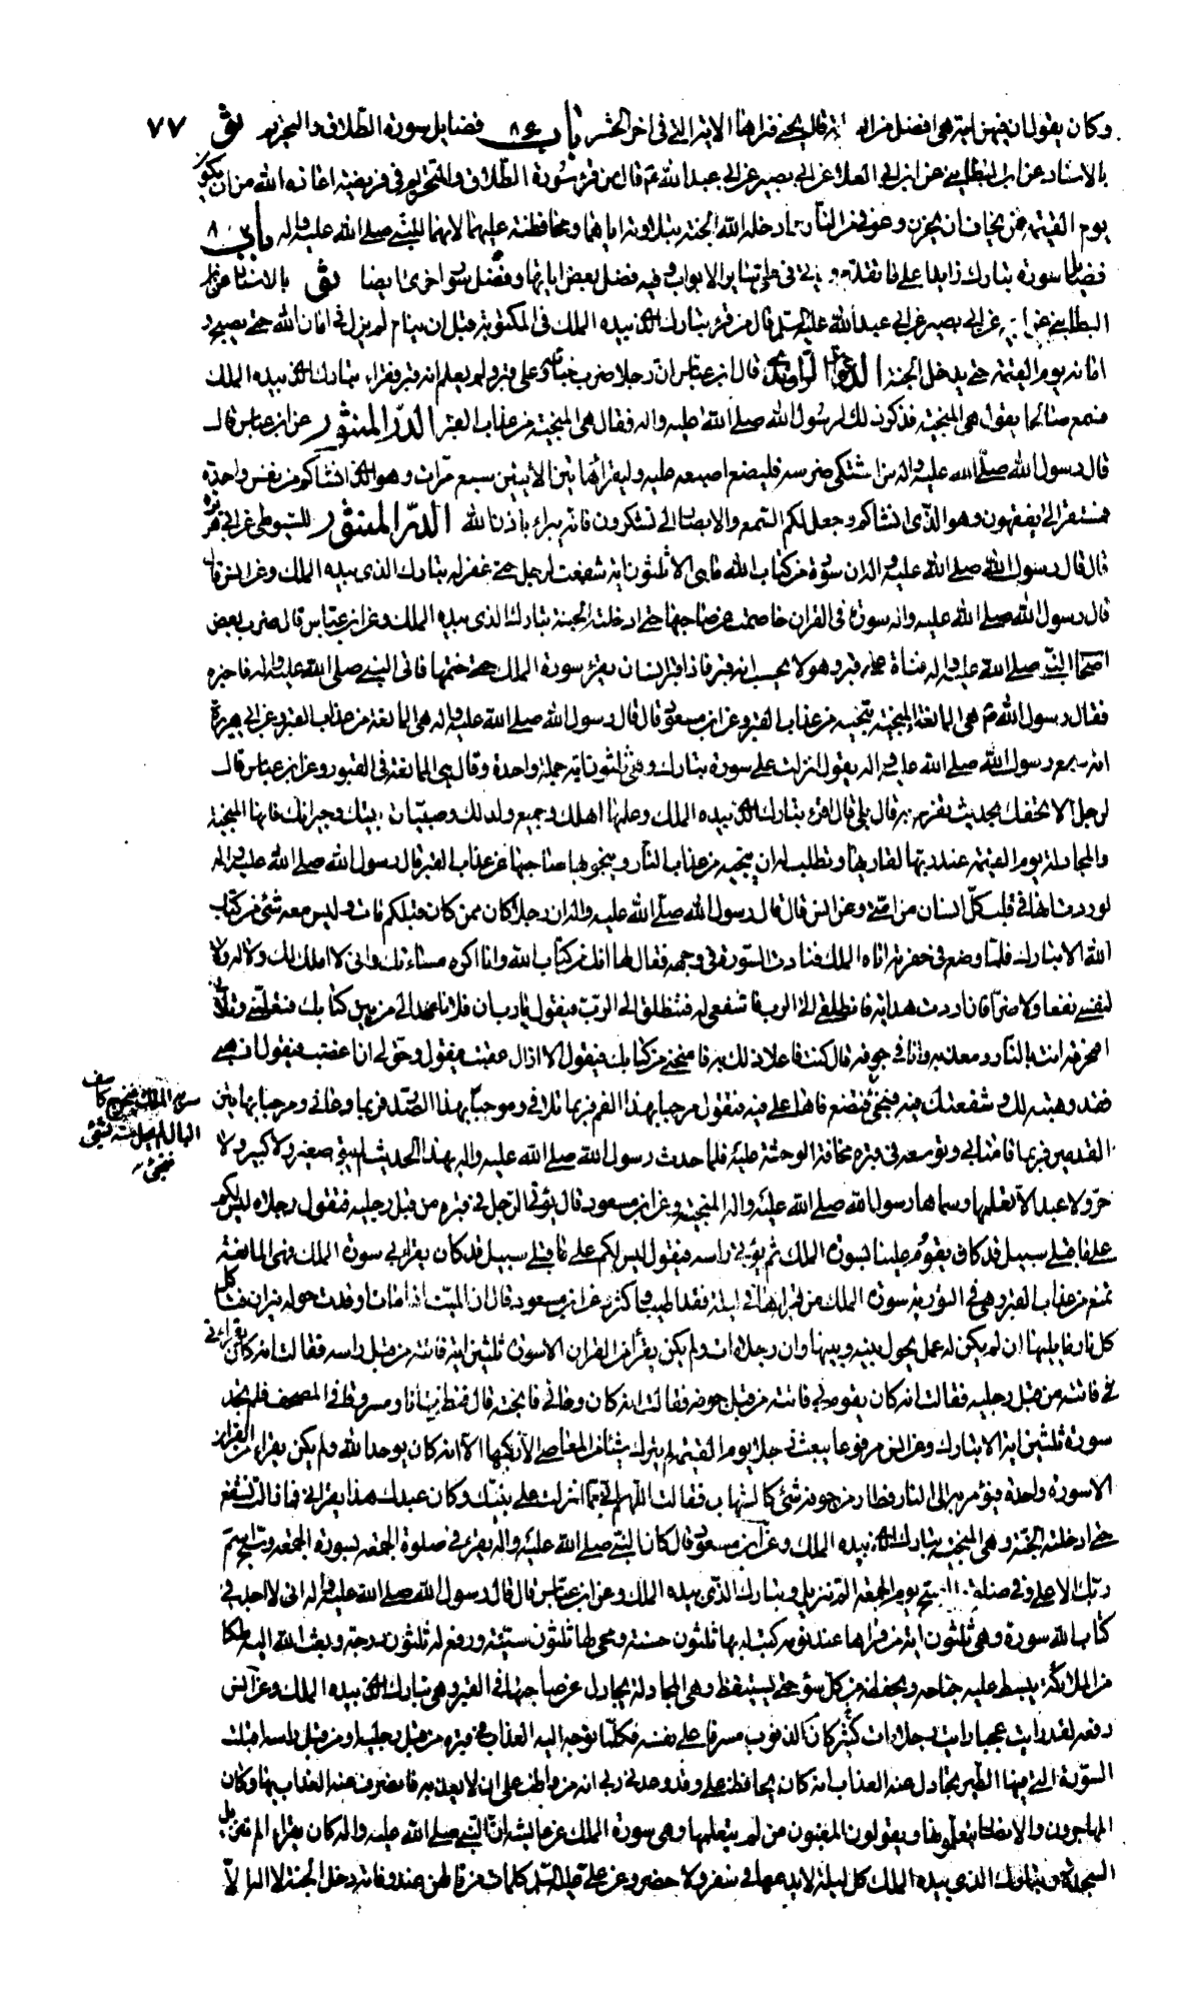 وكان يقول ان فيهن اية هي افضل من الف اية قال يحيى فنراها الاية التي في اخر الحشر باب ٨٤ فضايل سورة الطلاق والتحريم ثو ٧٧
بالاسناد عن ابن البطايني عن ابن ابي العلا عن ابي بصير عن ابي عبد الله ع قال من قرء سورة الطلاق والتحريم في فريضته اعاذه الله من ان يكون
يوم القيمة ممن يخاف ان يحزن وعوفي من النار وادخله الله الجنة بتلاوته اياهما ومحافظته عليهما لانهما للنبي صلى الله عليه واله باب ٨
فضايل سورة تبارك زايدا على ما تقدم و ياتي في طي تضاير الابواب وفيه فضل بعض اياتها وفضل سور اخرى ايضا ثو بالاسناد عن ابن
البطايني عن ابي بصير عن ابي عبد الله عليه السلم قال من قرء تبارك الذي بيده الملك في المكتوبة قبل ان ينام لم يزل في امان الله حتى يصبح و
امانه يوم القيمة حتى يدخل الجنة الدعوات الراوندي قال ابن عباس ان رجلا ضرب خباءه على قبر ولم يعلم انه قبر فقراء تبارك الذي بيده الملك
فسمع صائحا يقول هي المنجية فذكر ذلك لرسول الله صلى الله عليه واله فقال هي المنجية من عذاب القبر الدر المنثور عن ابن عباس قال
قال رسول الله صلى الله عليه واله من اشتكى ضرسه فليضع اصبعه عليه وليقرا هاتين الايتين سبع مرات وهو الذي انشاكم من نفس واحدة
فمستقر الى يفقهون وهو الذي انشاكم وجعل لكم السمع والابصار الى تشكرون فانه يبراء باذن الله الدر المنثور للسيوطي عن ابي هريرة
قال قال رسول الله صلى الله عليه واله ان سورة من كتاب الله ما هي الا ثلثون اية شفعت لرجل حتى غفر له تبارك الذي بيده الملك وعن انس قال
قال رسول الله صلى الله عليه واله سورة في القران خاصمت عن صاحبها حتى ادخلته الجنة تبارك الذي بيده الملك وعن ابن عباس قال ضرب بعض
اصحاب النبي صلى الله عليه واله خباءه على قبر وهو لا يحسب انه قبر فاذا قبر انسان يقرء سورة الملك حتى ختمها فاتى النبي صلى الله عليه واله فاخبره
فقال رسول الله ص هي المانعة المنجية تنجيه من عذاب القبر وعن ابن مسعود قال قال رسول الله صلى الله عليه واله هي المانعة من عذاب القبر وعن ابي هريرة
انه سمع رسول الله صلى الله عليه واله يقول انزلت على سورة تبارك وهي ثلثون اية جملة واحدة وقال هي المانعة في القبور وعن ابن عباس قال
لرجل الا اتحفك بحديث تفرح به قال بلى قال اقرء تبارك الذي بيده الملك وعلمها اهلك وجميع ولدك وصبيان بيتك وجيرانك فانها المنجية
والمجادلة يوم القيمة عند ربها لقاريها وتطلب له ان ينجيه من عذاب النار وينجو بها صاحبها من عذاب القبر قال رسول الله صلى الله عليه واله
لوددت انها في قلب كل انسان من امتي وعن انس قال قال رسول الله صلى الله عليه واله ان رجلا كان ممن كان قبلكم مات وليس معه شئ من كتاب
الله الا تبارك فلما وضع في حفرته اتاه الملك فثارت السورة في وجهه فقال لها انك من كتاب الله وانا اكره مساءتك واني لا املك لك ولا له ولا
لنفسي نفعا ولا ضرا فان اردت هذا به فانطلقي الى الرب فاشفعي له فتنطلق الى الرب فيقول يا رب ان فلانا عمد الى من بين كتابك فتعلمني وتلاني
افمحرقه انت بالنار ومعذبه وانا في جوفه فان كنت فاعلا ذلك به فامحني من كتابك فيقول الا اراك غضبت فيقول وحق لي ان اغضب فيقول اذهبي
فقد وهبته لك وشفعتك فيه فتجئ فتضع فاها على فيه فتقول مرحبا بهذا الفم فربما تلاني ومرحبا بهذا الصدر فربما وعاني ومرحبا بهاتين
القدمين فربما قامتا بي وتونسه في قبره مخافة الوحشة عليه فلما حدث رسول الله صلى الله عليه واله بهذا الحديث لم يبق صغير ولا كبير ولا
حر ولا عبد الا تعلمها وسماها رسول الله صلى الله عليه واله المنجية وعن ابن مسعود قال يؤتى الرجل في قبره من قبل رجليه فتقول رجلاه ليس لكم
على ما قبلي سبيل قد كان يقوم علينا بسورة الملك ثم يؤتى راسه فيقول ليس لكم على ما قبلي سبيل قد كان يقرا بي سورة الملك فهي المانعة
تمنع من عذاب القبر وهي في التورية سورة الملك من قراها في ليلة فقد اطيب واكثر وعن ابن مسعود قال ان الميت اذا مات اوقدت حوله نيران فتاكل
كل نار ما يليها ان لم يكن له عمل يحول بينه وبينها وان رجلا مات ولم يكن يقرأ من القران الا سورة ثلثين اية فاتته من قبل راسه فقالت انه كان يقراني
فاتته من قبل رجليه فقالت انه كان يقوم بي فاتته من قبل جوفه فقالت انه كان وعاني فانجته قال فنظرت انا ومسروق في المصحف فلم نجد
سورة ثلثين اية الا تبارك وعن انس مرفوعا يبعث رجل يوم القيمة لم يترك شيئا من المعاصي الا ركبها الا انه كان يوحد الله ولم يكن يقراء من القران
الا سورة واحدة فيؤمر به الى النار فطار من جوفه شئ كالشهاب فقالت اللهم اني مما انزلت على نبيك وكان عبدك هذا يقراني فما زالت تشفع
حتى ادخلته الجنة وهي المنجية تبارك الذي بيده الملك وعن ابن مسعود قال كان النبي صلى الله عليه واله يقرء في صلوة الجمعة بسورة الجمعة وسبح اسم
ربك الاعلى وفي صلوة الصبح يوم الجمعة الم تنزيل وتبارك الذي بيده الملك وعن ابن عباس قال قال رسول الله صلى الله عليه واله اني لاجد في
كتاب الله سورة وهي ثلثون اية من قراها عند نومه كتب له بها ثلثون حسنة ومحي لها ثلثون سيئة ورفع له ثلثون درجة وبعث الله اليه ملكا
من الملائكة يبسط عليه جناحه ويحفظه من كل سوء حتى يستيقظ وهي المجادلة يجادل عن صاحبها في القبر وهي تبارك الذي بيده الملك وعن انس
رفعه لقد رايت عجبا رايت رجلا مات كثير كان الذنوب مسرفا على نفسه فكلما توجه اليه العذاب في قبره من قبل رجليه او من قبل راسه اقبلت
السورة التي فيها الطير تجادل عنه العذاب انه كان يحافظ علي وقد وعدني ربي انه من واظب علي ان لا يعذبه فانصرف عنه العذاب بها وكان
المهاجرون والانصار يتعلمونها ويقولون المغبون من لم يتعلمها وهي سورة الملك عن عايشة ان النبي صلى الله عليه واله كان يقراء الم تنزيل
السجدة وتبارك الذي بيده الملك كل ليلة لا يدعها في سفر ولا حضر وعن علي عليه السلم كلمات من قالهن عند وفاته دخل الجنة لا اله الا